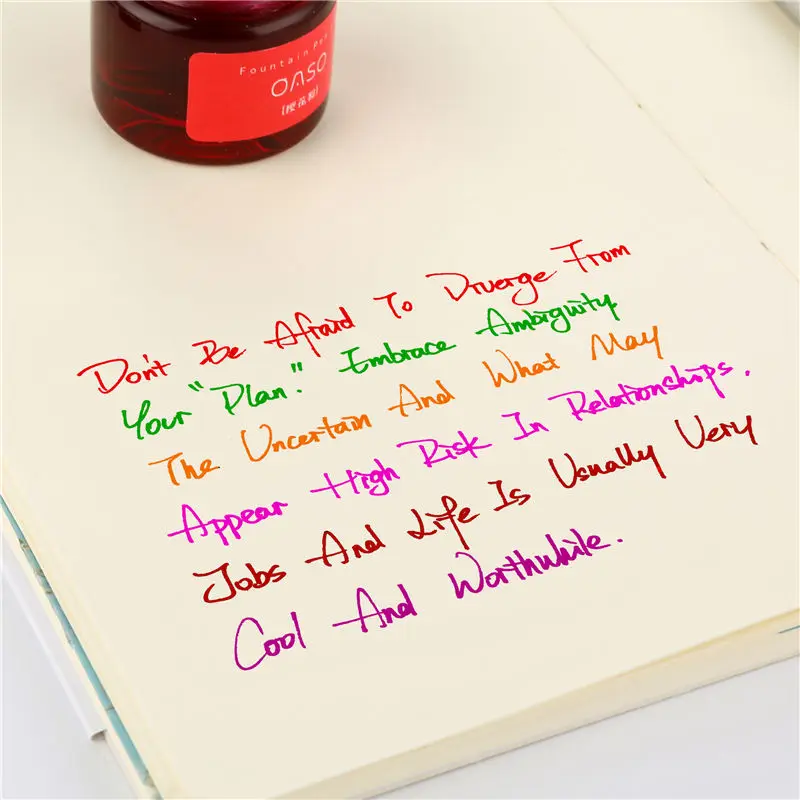 Fountain Pen
OASO
Don't Be Afraid To Diverge From
Your "Plan." Embrace Ambiguity
The Uncertain And What May
Appear High Risk In Relationships.
Jobs And Life Is Usually Very
Cool And Worthwhile.